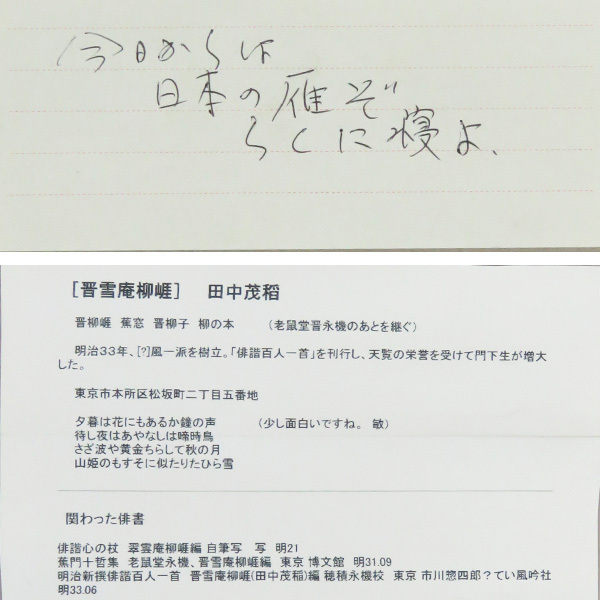 今日からは
日本の雁ぞ
らくに寝よ、
[晋雪庵柳崕] 田中茂稲
晋柳崕 蕉窓 晋柳子 柳の本 (老鼠堂晋永機のあとを継ぐ)
明治33年、[?]風一派を樹立。「俳諧百人一首」を刊行し、天覧の栄誉を受けて門下生が増大
した。
東京市本所区松坂町二丁目五番地
夕暮は花にもあるか鐘の声 (少し面白いですね。 敏)
待し夜はあやなしは啼時鳥
さざ波や黄金ちらして秋の月
山姫のもすそに似たりたひら雪
関わった俳書
俳諧心の杖 翠雲庵柳崕編 自筆写 写 明21
蕉門十哲集 老鼠堂永機、晋雪庵柳崕編 東京 博文館 明31.09
明治新撰俳諧百人一首 晋雪庵柳崕(田中茂稲)編 穂積永機校 東京 市川惣四郎?てい風吟社
明33.06